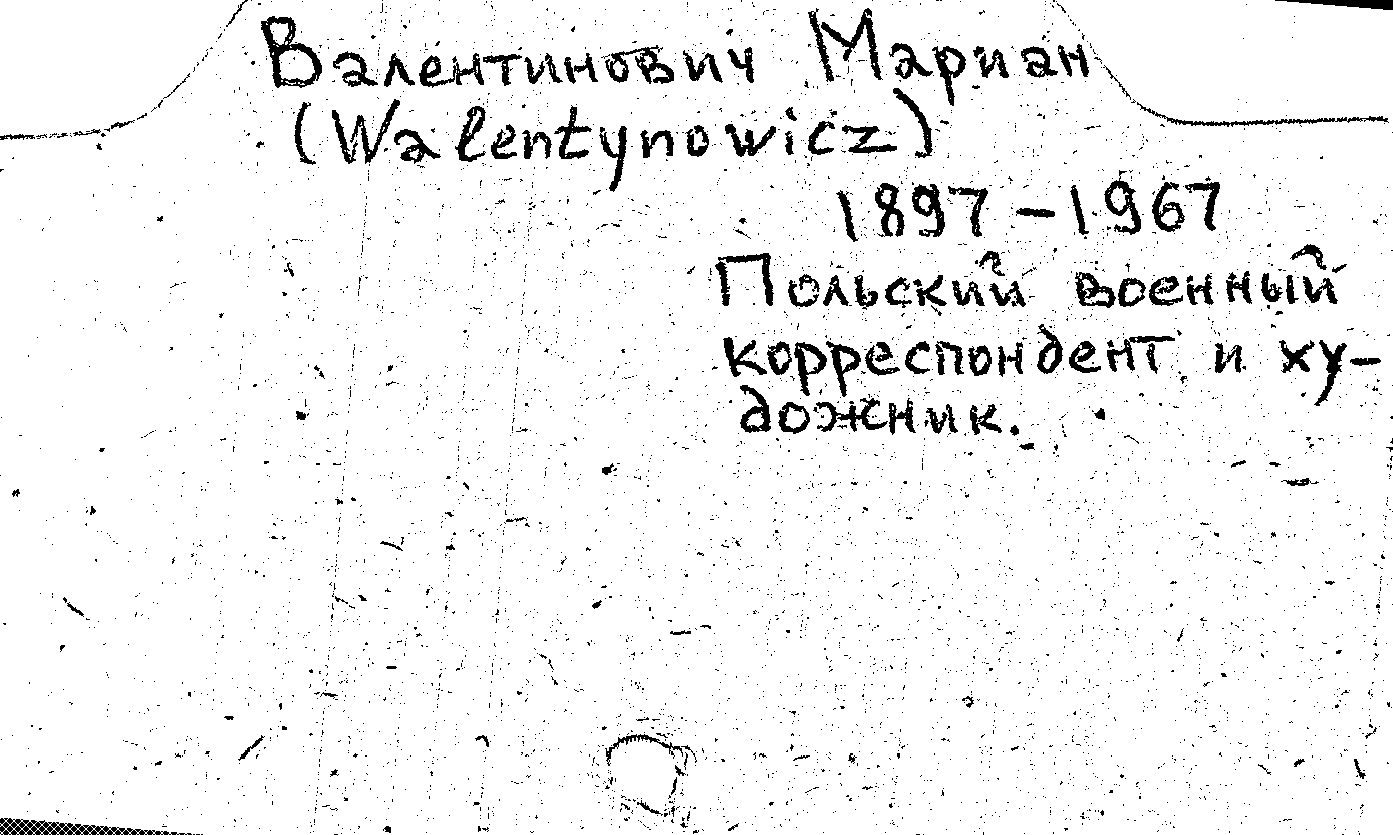 Валентинович Мариан
(Walentynowicz)
1897 – 1967
Польский военный
корреспондент и ху-
дожник.